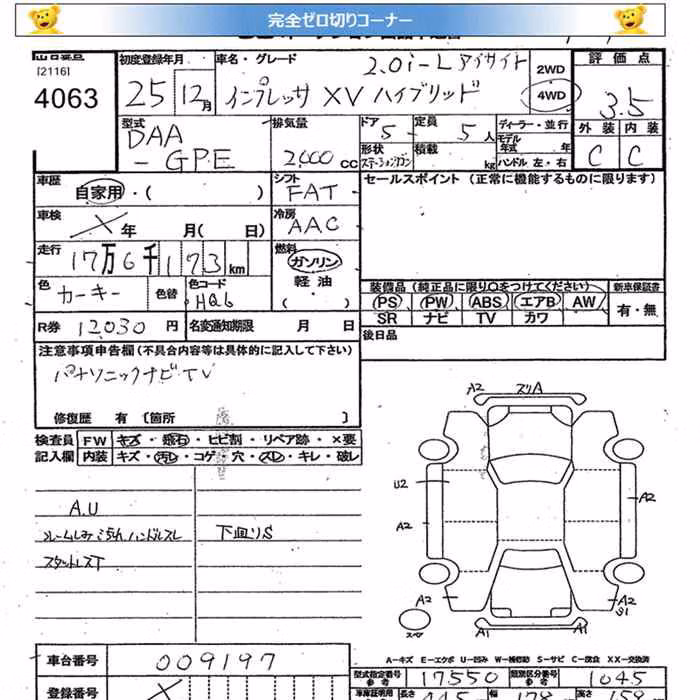 完全ゼロ切りコーナー
出品番号 初度登録年月 車名・グレード 2WD 評価点
[2116] 2.0i-L アイサイト
4063 25 12月 インプレッサ XV ハイブリッド 4WD 3.5
型式 排気量 ドア 定員 ディーラー・並行 外装 内装
DAA 5 5人 モデル年式 年 C C
-GPE 2000cc 形状 ステーションワゴン 積載 kg ハンドル 左・右
車歴 シフト セールスポイント (正常に機能するものに限ります)
自家用・( ) FAT
車検 冷房
X 年 月( 日) AAC
走行 燃料
17万6千173km ガソリン
色 色替 色コード 軽油 装備品 (純正品に限り○をつけてください) 新車保証書
カーキー HQ6 ・( ) PS PW ABS エアB AW 有・無
R券 12030円 名変通知期限 月 日 SR ナビ TV カワ
注意事項申告欄(不具合内容等は具体的に記入して下さい) 後日品
パナソニックナビTV
修復歴 有 〔箇所 〕
検査員 FW キズ・飛石・ヒビ割・リペア跡・×要
記入欄 内装 キズ・汚レ・コゲ・穴・スレ・キレ・破レ
A2 スリA
U2
A2
A2
A.U
ハンドルスレ 下廻りS
スタットレスT
A2 A2
S1
スペア A1 A1
A-キズ E-エクボ U-凹み W-補修跡 S-サビ C-腐食 XX-交換済
車台番号 009197 型式指定番号 参考 17550 類別区分番号 参考 1045
登録番号 X 長さ 幅 高さ